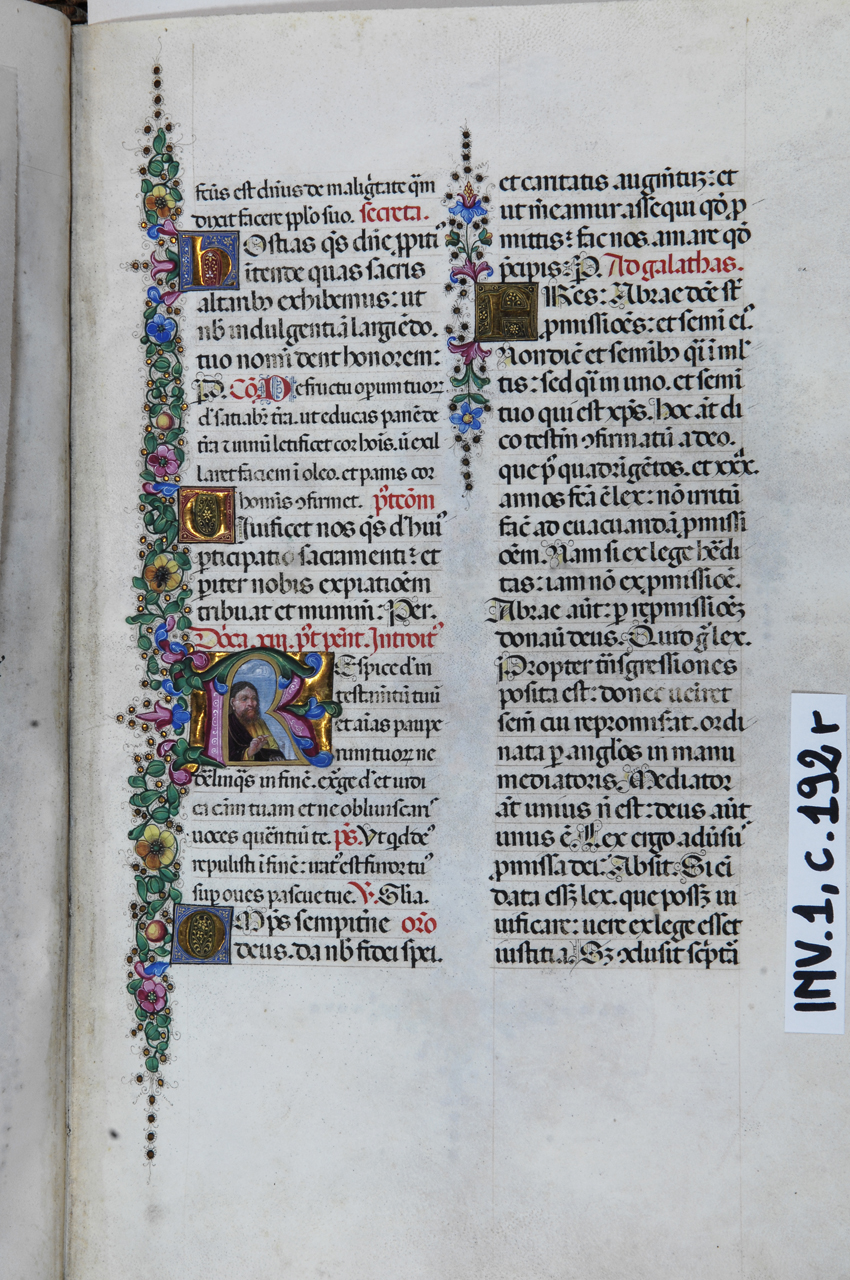 fctus est dn̄us de maligt̄ate qm̄
dixit facere pplo suo. Secreta.
Hostias qs dn̄e ppiti᷒
intende quas sacris
altaribꝫ exhibemus: ut
nb̄ indulgentiā largiēdo.
tuo nomī dent honorem:
P. Cō De fructu opum tuoꝝ
d' satiabr̄ tr̄a. ut educas panē de
tr̄a ⁊ uinū letificet cor hoīs. ū exil
laret faciem ī oleo. et panis cor
homīs ꝯfirmet. p̄t com̄
Viuificet nos qs d' hui᷒
ꝑticipatio sacramenti: et
ꝑiter nobis expiatiōem
tribuat et munim̄: Per.
Dōca xiii. p̄t pent. Introit᷒
Respice dn̄
in testm̄tū tuū
et aīas paupe
rum tuoꝝ ne
derelinqs in finē. exge d' et iudi
ca cām tuam et ne obliuiscar̄
uoces querentiū te. ps. Vt qd de᷒
repulisti ī finē: irat᷒ est furor tu᷒
sup oues pascue tue. V. Glia.
Omps sempitne or̄o
deus. da nb̄ fidei spei.
et caritatis augm̄tuꝫ: et
ut m̄eamur assequi qd̄ p
mittis: fac nos amare qd̄
p̄cipis: P. Ad galathas.
FRes: Abrae dc̄e st̄
ꝓmissiōes: et semī ei᷒.
Non dic̄ et semībꝫ q̄i ī ml̄
tis: sed q̄i in uno. et semī
tuo qui est xp̄s. Hoc āt di
co testm̄ ꝯfirmatū a deo.
que p᷒ quadrīgētos. et xxx.
annos fcā ē lex: nō irritū
fac̄ ad euacuandā ꝓmissi
ōem. Nam si ex lege hēdi
tas: iam nō ex ꝓmissiōe.
Abrae aūt: ꝑ repmissiōeꝫ
donauit deus. Quid g̊ lex.
Propter trn̄sgressiones
posita est: donec ueniret
sem̄ cui repromiserat. ordi
nata ꝑ anglōs in manu
mediatoris. Mediator
āt unius n̄ est: deus aūt
unus ē. Lex ergo aduersu᷒
ꝓmissa dei: Absit. Si eī
data essꝫ lex. que possꝫ ui
uificare: uere ex lege esset
iustitia. Sꝫ ꝯclusit sc̄ptā
INV. 1, c. 192 r